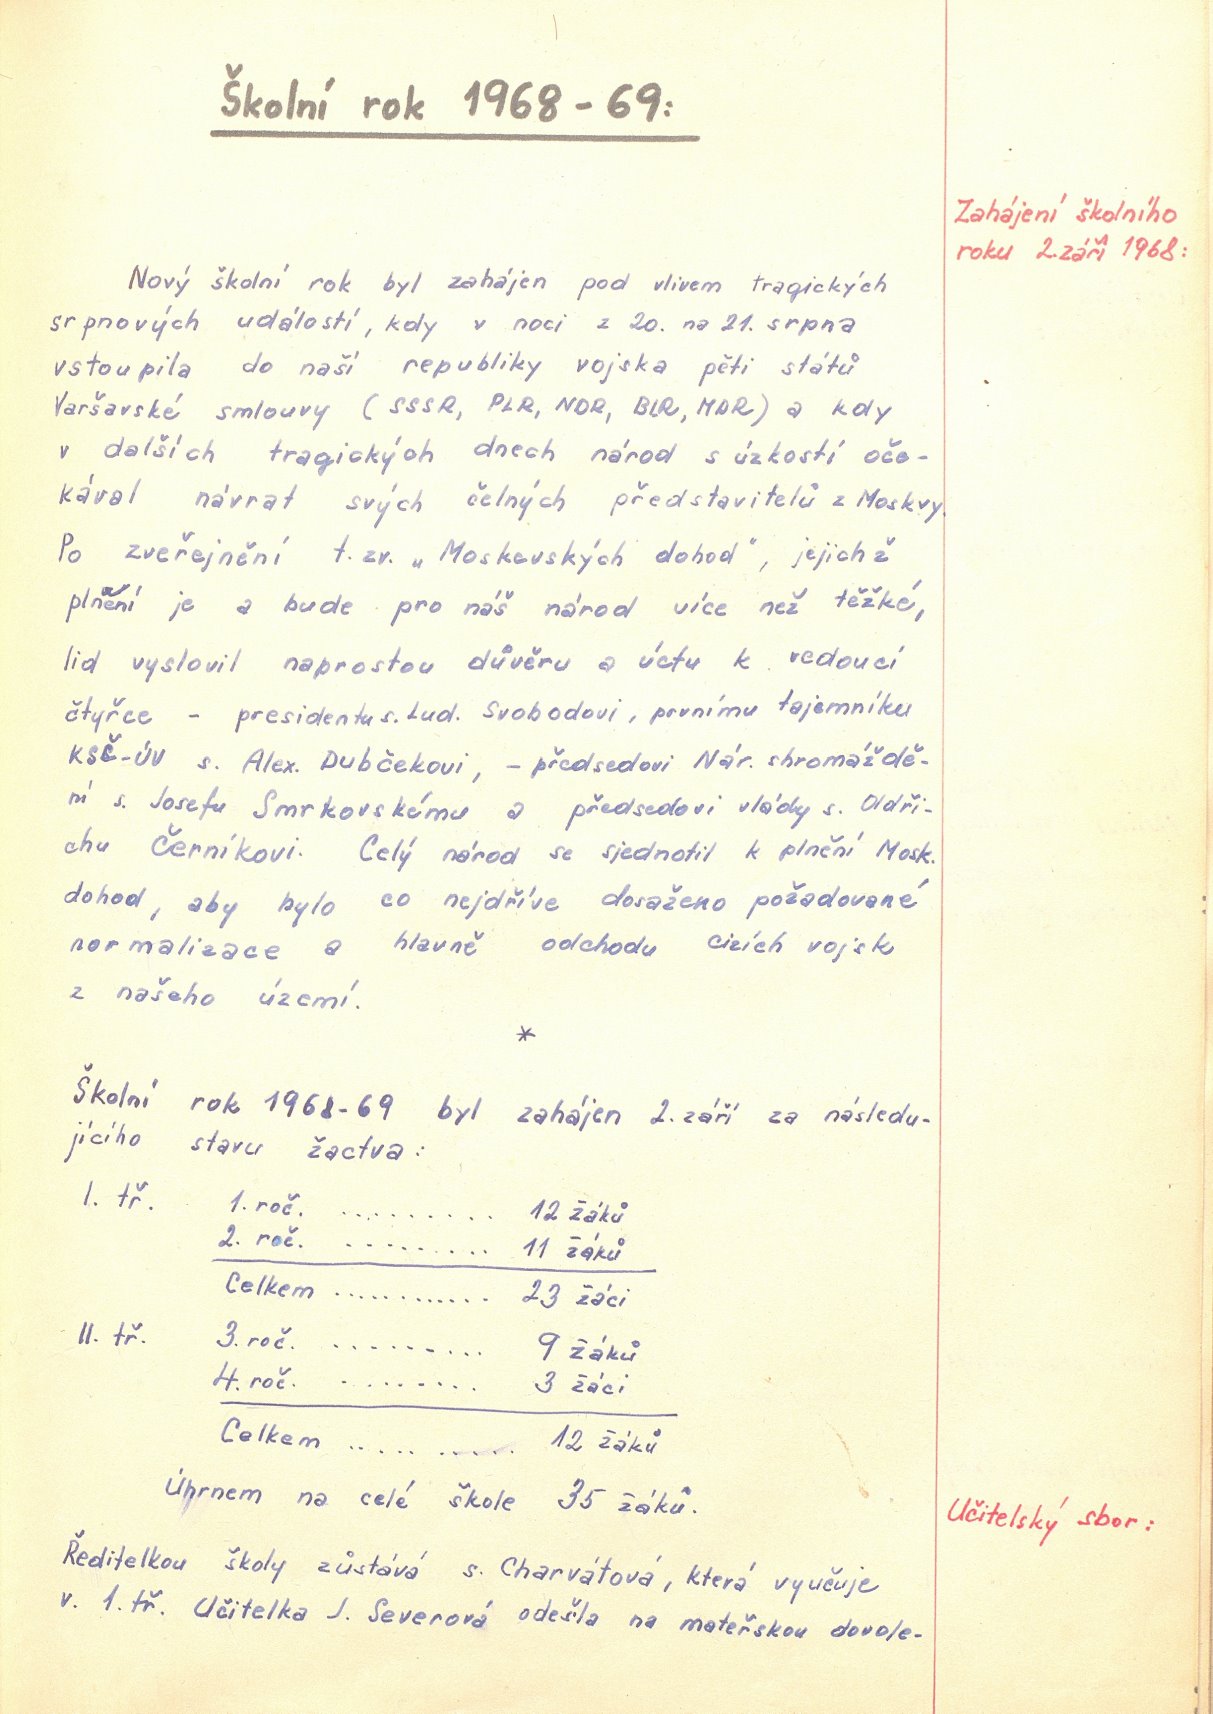 Školní rok 1968 - 69:
Zahájení školního
roku 2. září 1968:
Nový školní rok byl zahájen pod vlivem tragických
srpnových událostí, kdy v noci z 20. na 21. srpna
vstoupila do naší republiky vojska pěti států
Varšavské smlouvy (SSSR, PLR, NDR, BLR, MDR) a kdy
v dalších tragických dnech národ s úzkostí oče-
kával návrat svých čelných představitelů z Moskvy.
Po zveřejnění t. zv. „Moskevských dohod", jejichž
plnění je a bude pro náš národ více než těžké,
lid vyslovil naprostou důvěru a úctu k vedoucí
čtyřce - presidentu s. Lud. Svobodovi, prvnímu tajemníku
KSČ-ÚV s. Alex. Dubčekovi, - předsedovi Nár. shromáždě-
ní s. Josefu Smrkovskému a předsedovi vlády s. Oldři-
chu Černíkovi. Celý národ se sjednotil k plnění Mosk.
dohod, aby bylo co nejdříve dosaženo požadované
normalizace a hlavně odchodu cizích vojsk
z našeho území.
*
Školní rok 1968-69 byl zahájen 2. září za následu-
jícího stavu žactva:
I. tř. 1. roč. ......... 12 žáků
2. roč. ......... 11 žáků
Celkem ........... 23 žáci
II. tř. 3. roč. ......... 9 žáků
4. roč. ......... 3 žáci
Celkem ........... 12 žáků
Úhrnem na celé škole 35 žáků.
Učitelský sbor:
Ředitelkou školy zůstává s. Charvátová, která vyučuje
v. 1. tř. Učitelka J. Severová odešla na mateřskou dovole-